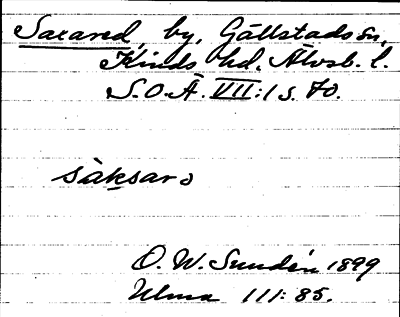 Saxared, by, Gällstads sn,
Kinds hd. Älvsb. l.
S.O.Ä. VII:1 s. 70.
sàksarə
O. W. Sundén 1899
Ulma 111:85.